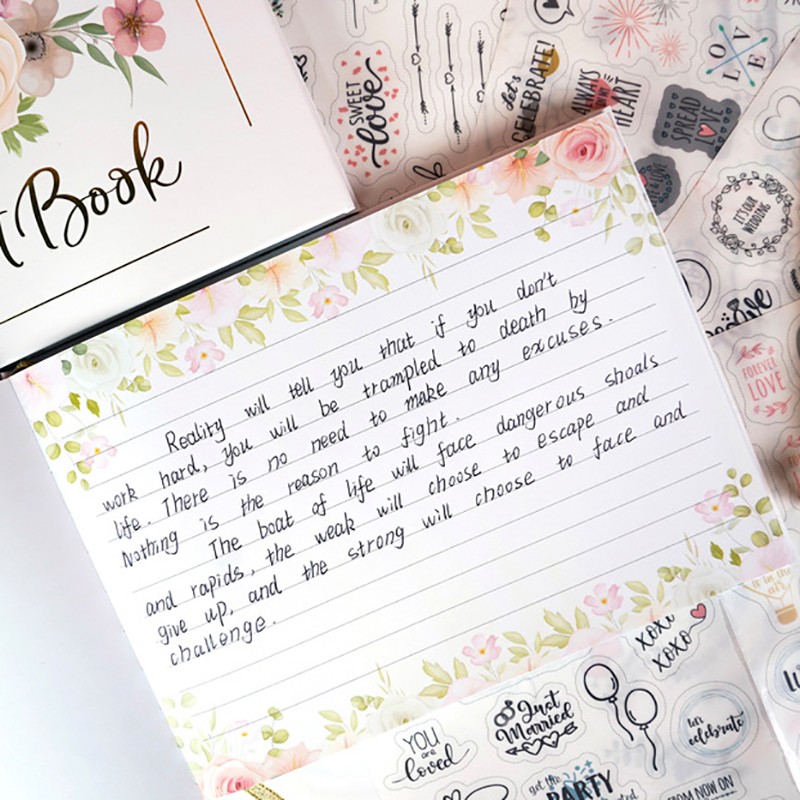 Book
SWEET
love
let's
CELEBRATE!
ALWAYS
HEART
LOVE
SPREAD
LOVE
IT'S OUR
WEDDING
FOREVER
LOVE
Reality will tell you that if you don't
work hard, you will be trampled to death by
life. There is no need to make any excuses.
Nothing is the reason to fight.
The boat of life will face dangerous shoals
and rapids, the weak will choose to escape and
give up, and the strong will choose to face and
challenge.
xoxo
YOU
are
loved
Just
Married
let's
celebrate
get the
PARTY
started
FROM NOW ON